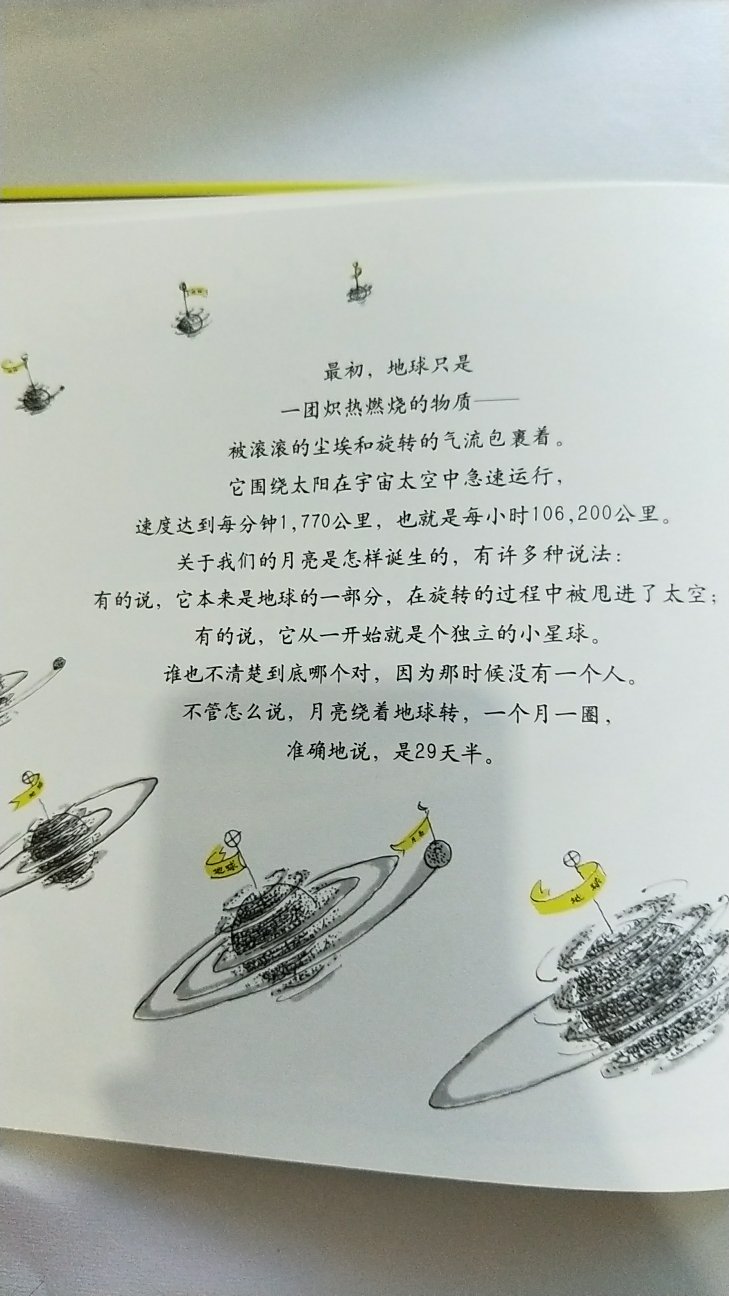 最初，地球只是
一团炽热燃烧的物质——
被滚滚的尘埃和旋转的气流包裹着。
它围绕太阳在宇宙太空中急速运行，
速度达到每分钟1,770公里，也就是每小时106,200公里。
关于我们的月亮是怎样诞生的，有许多种说法：
有的说，它本来是地球的一部分，在旋转的过程中被甩进了太空；
有的说，它从一开始就是个独立的小星球。
谁也不清楚到底哪个对，因为那时候没有一个人。
不管怎么说，月亮绕着地球转，一个月一圈，
准确地说，是29天半。
地球
月亮
地球